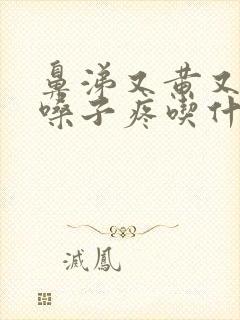 鼻涕又黄又
嗓子疼喫什
滅鳳